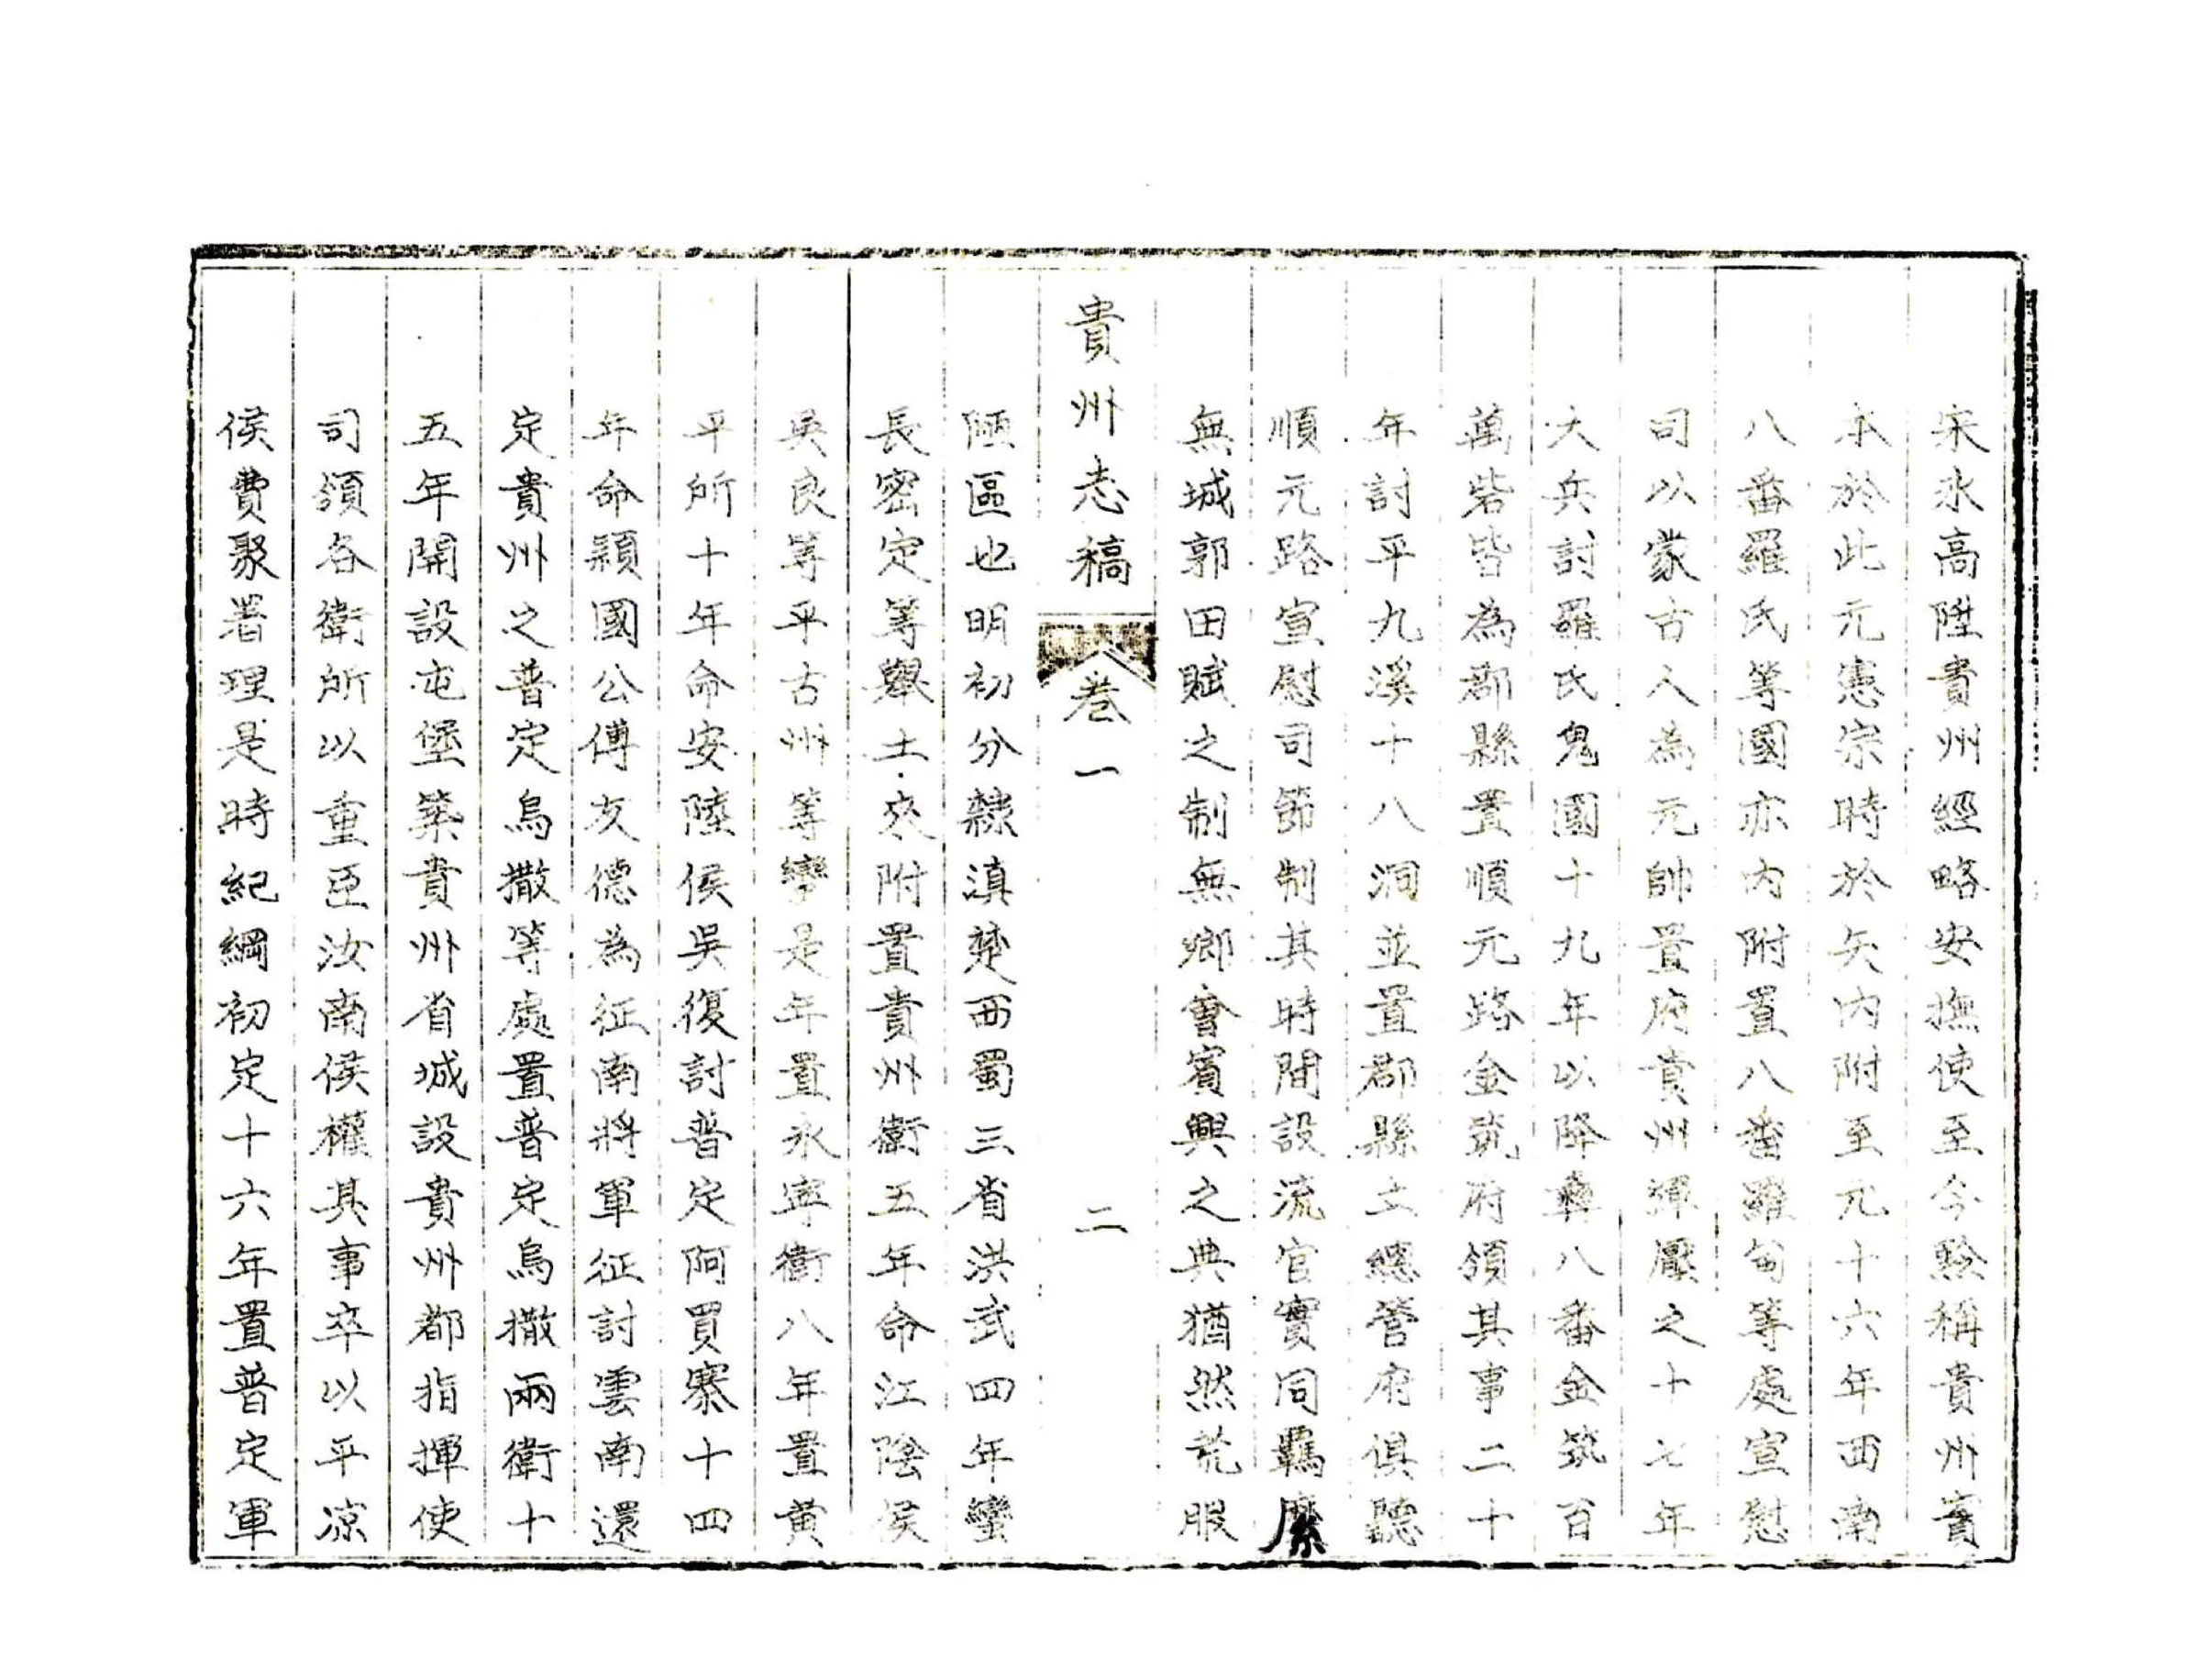 宋永高陞貴州經略安撫使至今黔稱貴州實
本於此元憲宗時於矢內附至元十六年西南
八番羅氏等國亦內附置八番羅甸等處宣慰
司以蒙古人為元帥置府貴州彈壓之十七年
大兵討羅氏鬼國十九年以降彝八番金筑百
萬砦皆為郡縣置順元路金筑府領其事二十
年討平九溪十八洞並置郡縣土總管府俱聽
順元路宣慰司節制其時間設流官實同羈縻
無城郭田賦之制無鄉會賓興之典猶然荒服
貴州志稿 卷一 二
陋區也明初分隸滇楚西蜀三省洪武四年蠻
長密定等舉土來附置貴州衛五年命江陰侯
吳良等平古州等蠻是年置永寧衛八年置黃
平所十年命安陸侯吳復討普定阿買寨十四
年命潁國公傅友德為征南將軍征討雲南還
定貴州之普定烏撒等處置普定烏撒兩衛十
五年開設屯堡築貴州省城設貴州都指揮使
司領各衛所以重臣汝南侯權其事卒以平凉
侯費聚署理是時紀綱初定十六年置普定軍